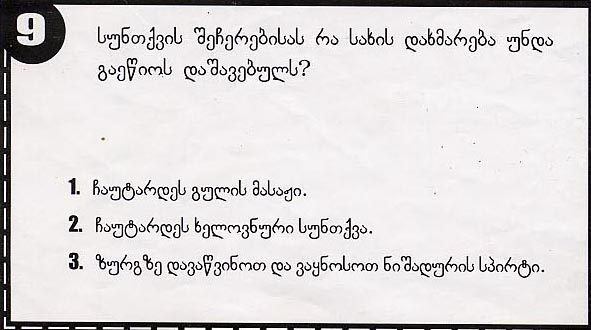 9
სუნთქვის შეჩერებისას რა სახის დახმარება უნდა
გაეწიოს დაშავებულს?
1. ჩაუტარდეს გულის მასაჟი.
2. ჩაუტარდეს ხელოვნური სუნთქვა.
3. ზურგზე დავაწვინოთ და ვაყნოსოთ ნიშადურის სპირტი.